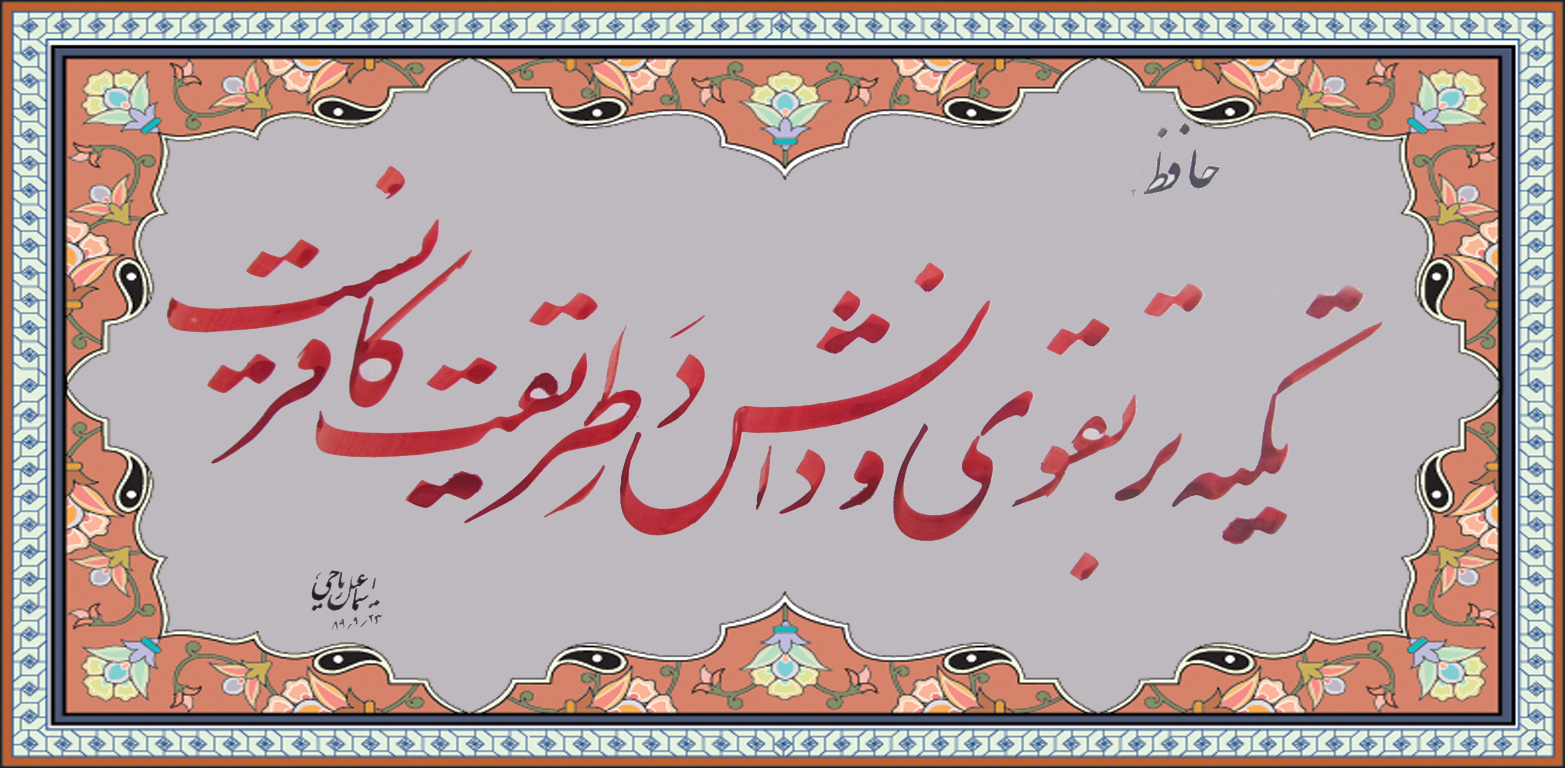 حافظ
تکیه بر تقوی و دانش در طریقت کافریست
۸۹/۹/۲۳